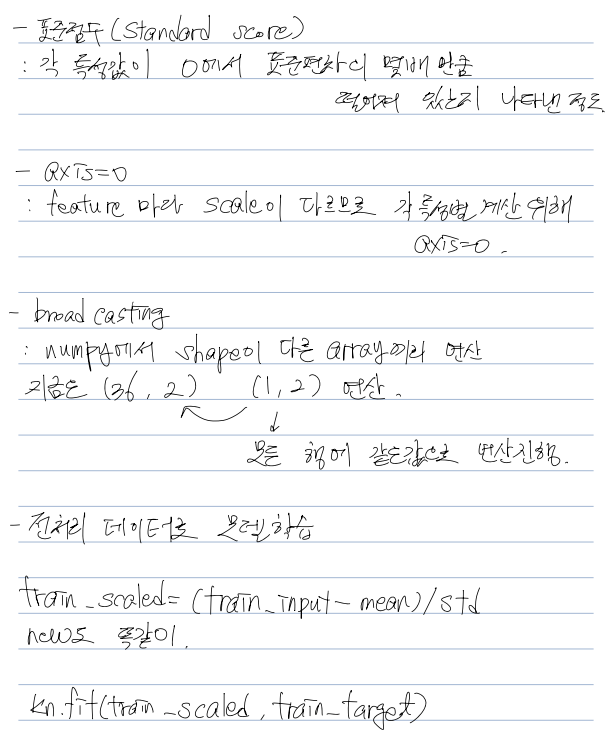 - 표준점수 (Standard score)
: 각 특성값이 0에서 표준편차의 몇배 만큼
떨어져 있는지 나타낸 정도
- axis=0
: feature 마다 scale이 다르므로 각 특성별 계산 위해
axis=0.
- broad casting
: numpy에서 shape이 다른 array끼리 연산
지금은 (36, 2) (1, 2) 연산.
모든 행에 같은값으로 연산진행.
- 전처리 데이터로 모델학습
train_scaled= (train_input-mean)/std
new도 똑같이.
kn.fit(train_scaled, train_target)